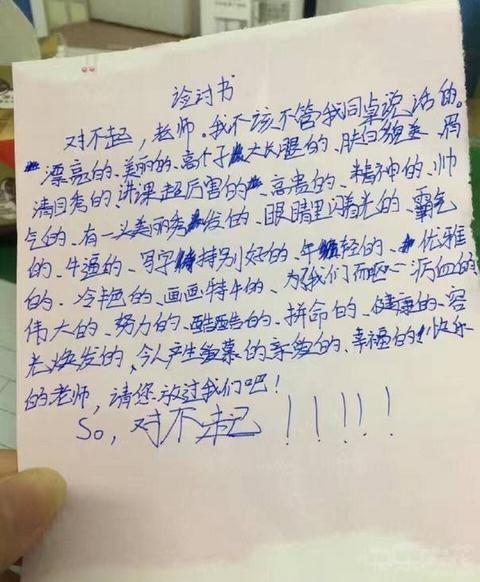 检讨书
对不起，老师。我不该不管我同桌说话的。
漂亮的、美丽的、高个子大长腿的、肤白貌美、眉
清目秀的、讲课超厉害的、高贵的、精神的、帅
气的、有一头美丽秀发的、眼睛里闪着光的、霸气
的、牛逼的、写字特别好的、年轻的、优雅
的、冷艳的、画画特牛的、为我们而呕心沥血的
伟大的、努力的、酷酷的、拼命的、健康的、容
光焕发的、令人产生羡慕的亲爱的、幸福的、快乐
的老师，请您放过我们吧！
So，对不起！！！！！